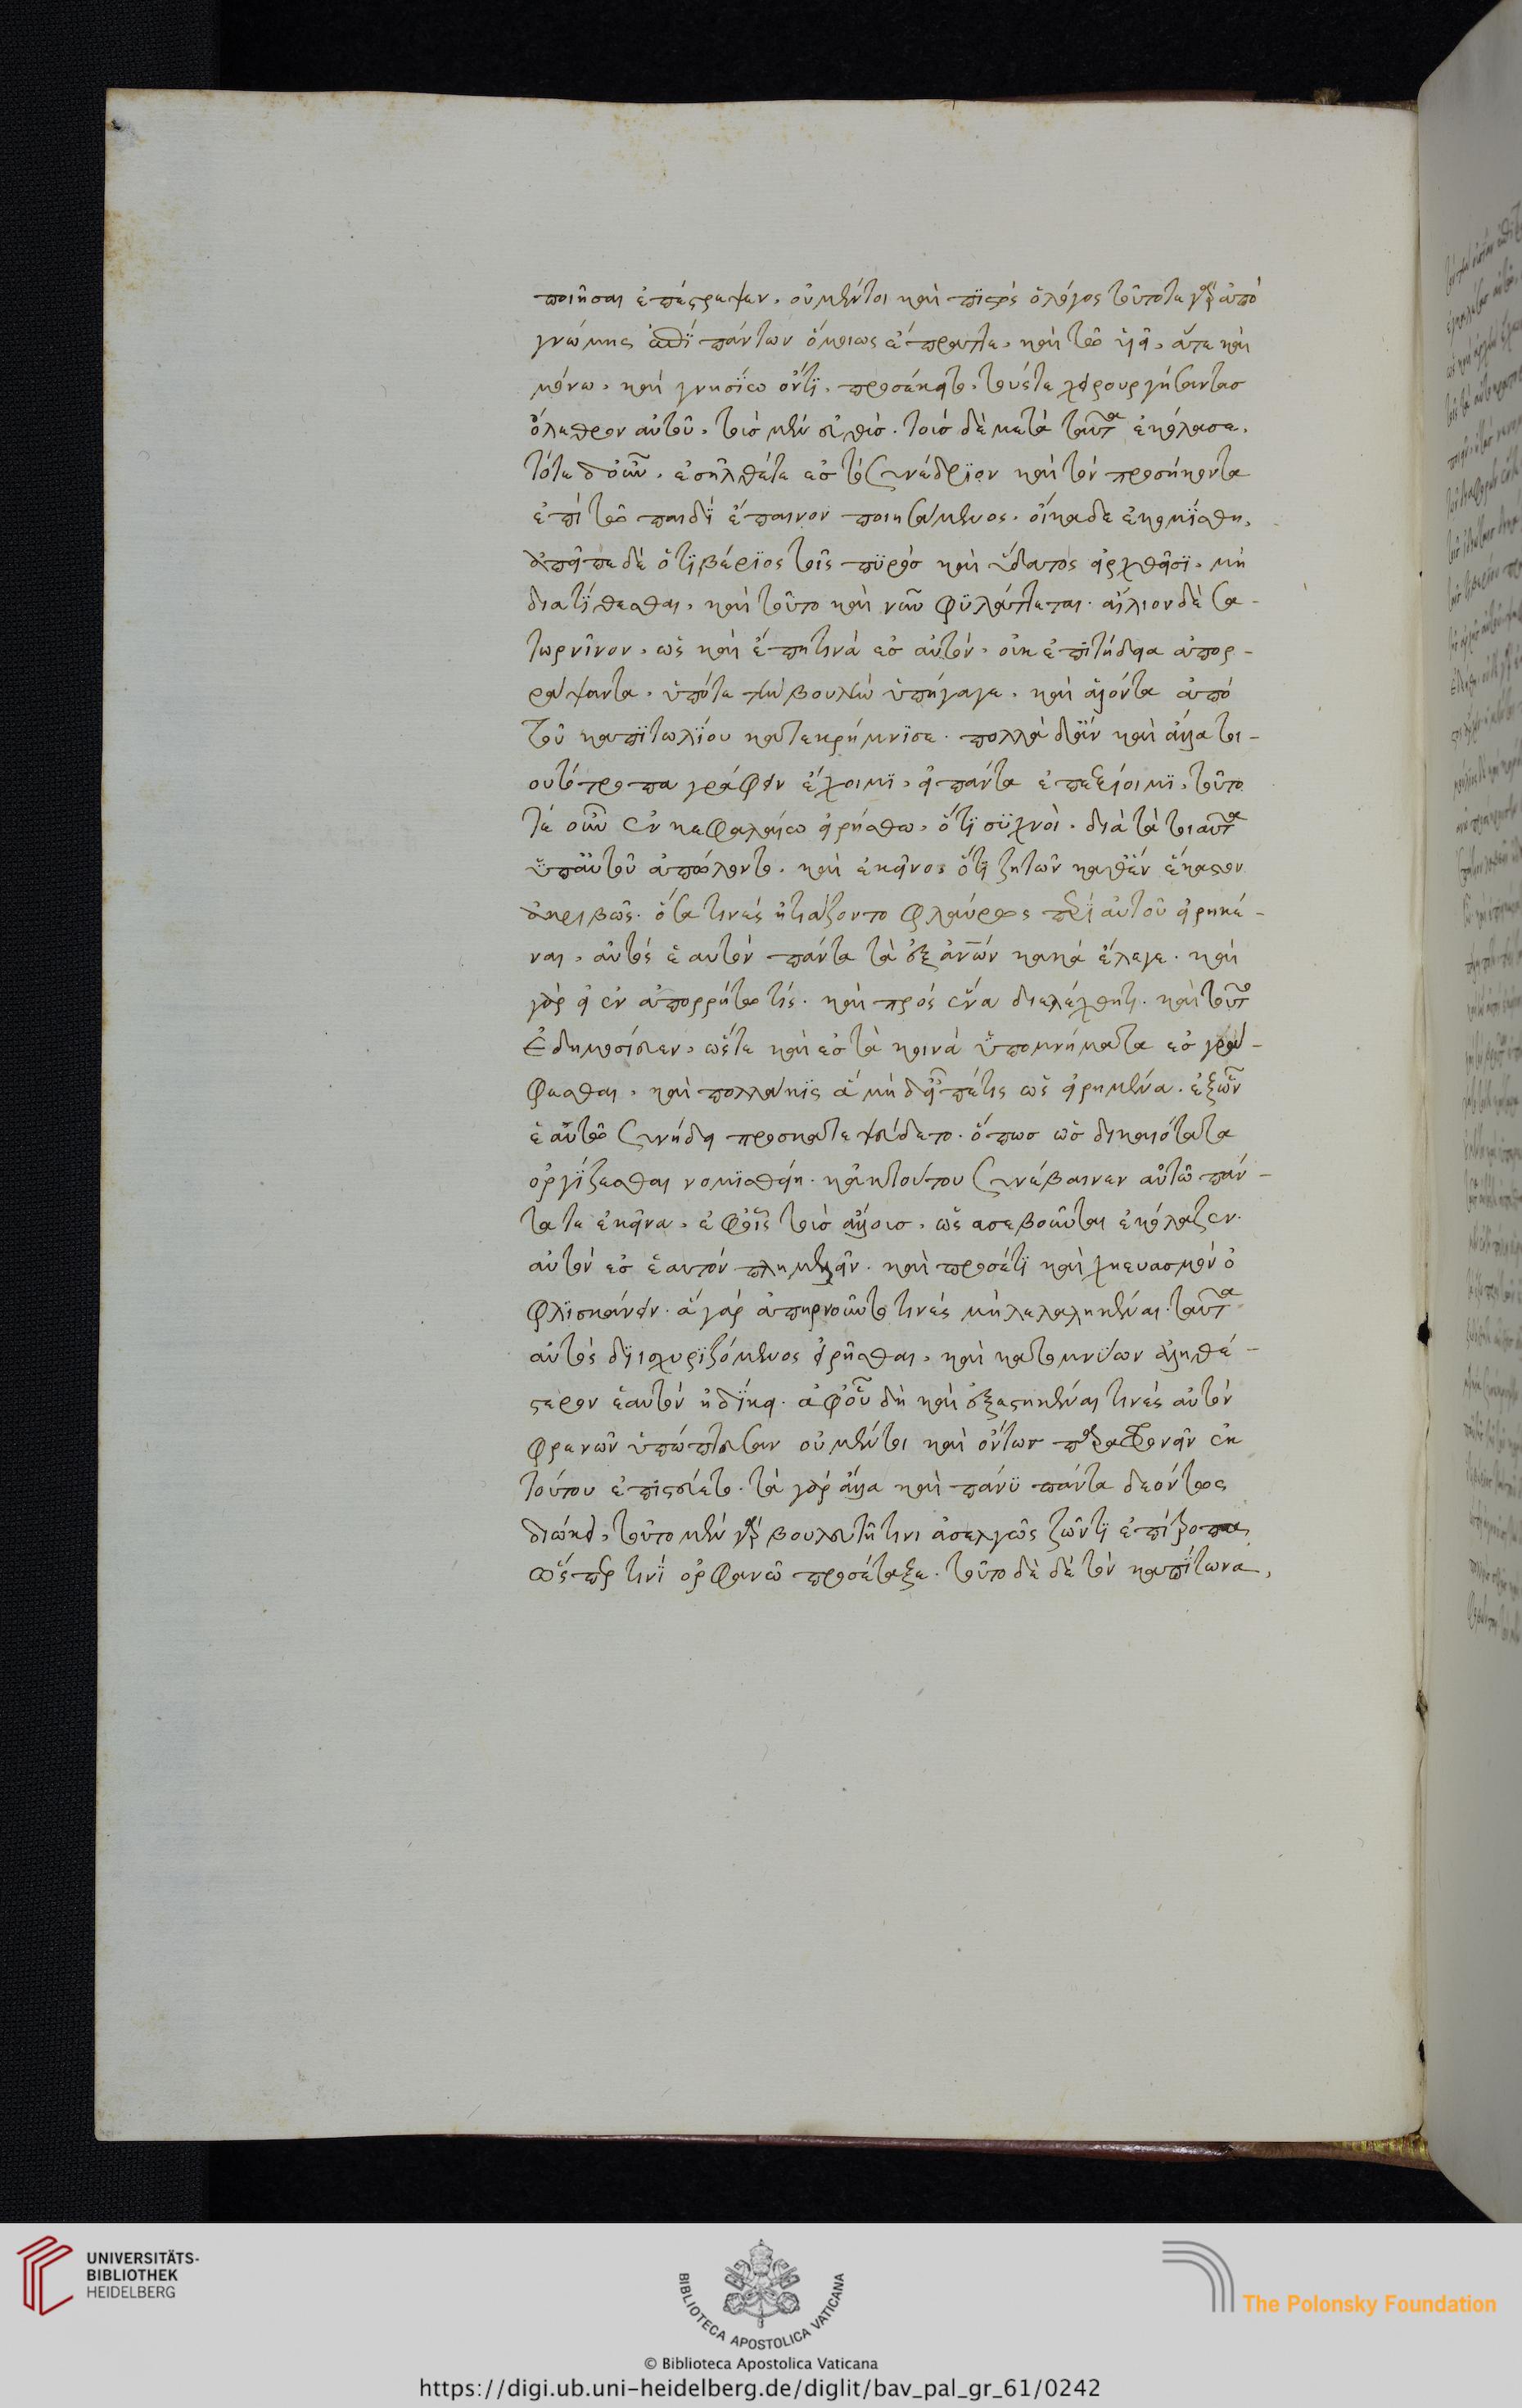 ποιῆσαι ἐπέστρεψεν, οὐ μέντοι καὶ πϊστὸς ὁ λόγος τοῦτο τε γὰρ ἀπὸ
γνώμης ἐπῒ πάντων ὅμοιως ἔπραττε, καὶ τῶ υἱεῖ, ἅτε καὶ
μόνω, καὶ γνησΐω ὄντϊ, προσέκειτο, τούς τε χειρουργήσαντασ
ὄλεθρον αὐτοῦ, τοὺσ μὲν εὐθὺσ. τοὺσ δὲ μετὰ ταῦτα ἐκόλασε,
τότε δ᾽ οὖν, ἐσῆλθέ τε ἐσ τὸ συνέδρϊον καὶ τὸν προσήκοντα
ἐπὶ τῶ παιδῒ ἔπαινον ποιησάμενος. οἴκαδε ἐκομΐσθη,
ἀπεῖπε δὲ ὁ τϊβέριος τοῖς πϋρὸσ καὶ ὕδατος εἰρχθεῖσϊ, μὴ
διατΐθεσθαι, καὶ τοῦτο καὶ νῦν φϋλάττεται. αἴλιον δὲ σα-
τορνῖνον, ὡς καὶ ἔπη τινὰ ἐσ αὐτὸν, οὐκ ἐπϊτήδεια ἀπορ-
ρίψαντα, ὑπό τε τὴν βουλὴν ὑπήγαγε, καὶ ἁλόντα ἀπὸ
τοῦ καπϊτωλΐου κατεκρήμνϊσε. πολλὰ δ᾽ ἂν καὶ ἄλλα τοι-
ουτότροπα γράφειν ἔχοιμϊ, εἰ πάντα ἐπεξίοιμϊ, τοῦτο
τὲ οὖν ἐν κεφαλαίω εἰρήσθω, ὅτϊ σϋχνοὶ. διὰ τὰ τοιαῦτα
ὑπ᾽ αὐτοῦ ἀπώλοντο. καὶ ἐκεῖνο, ὅτϊ ζητῶν καθ᾽ ἓν ἕκαστον
ἀκριβῶς. ὅσα τινὲς ἠτιάζοντο φλαύρως περῒ αὐτοῦ εἰρηκέ-
ναι, αὐτὸς ἑαυτὸν πάντα τὰ ἐξ ἀνων κακὰ ἔλεγε. καὶ
γὰρ εἰ ἐν ἀπορρήτω τίς. καὶ πρὸς ἕνα διελέχθη τι. καὶ τοῦτο
ἐδημοσίευεν, ὥστε καὶ ἐσ τὰ κοινὰ ὑπομνήματα ἐσ γρά-
φεσθαι, καὶ πολλάκϊς ἃ μὴ δ᾽ εἶπέ τις ὡς εἰρημένα. ἐξ ὧν
ἑαυτῶ συνήδει προσκατεψεύδετο. ὅπωσ ὡσ δικαιότατα
ὀργΐζεσθαι νομϊσθείη. κἀκ τούτου συνέβαινεν αὐτῶ πάν-
τα τε ἐκεῖνα, ἐφ᾽ οἷς τοὺσ ἄλλουσ, ὡς ασεβοῦντας ἐκόλαζεν.
αὐτὸν ἐσ ἑαυτόν πλημμελεῖν. καὶ προσέτϊ καὶ χλευασμὸν ὀ
φλϊσκάνειν. ἃ γὰρ ἀπηρνοῦντο τινὲς μὴ λελαληκέναι. ταῦτα
αὐτὸς δϊισχυρϊζόμενος εἰρῆσθαι, καὶ κατομνΰων ἀληθέ-
στερον ἑαυτὸν ἠδΐκει. ἀφ᾽ οὗ δὴ καὶ ἐξεστηκέναι τινὲς αὐτὸν
φρενῶν ὑπώπτευσαν οὐ μέντοι καὶ ὄντωσ παραφρονεῖν ἐκ
τούτου ἐπιστεύετο. τὰ γὰρ ἄλλα καὶ πάνϋ πάντα δεόντως
διώκει, τοῦτο μὲν γὰρ βουλευτῆ τινι ἀσελγῶς ζῶντϊ ἐπίτροπον
ὥσπερ τινῒ ὀρφανῶ προσέταξε. τοῦτο δὲ δὲ τὸν καπΐτωνα,
UNIVERSITÄTS-
BIBLIOTHEK
HEIDELBERG
BIBLIOTECA APOSTOLICA VATICANA
The Polonsky Foundation
© Biblioteca Apostolica Vaticana
https://digi.ub.uni-heidelberg.de/diglit/bav_pal_gr_61/0242